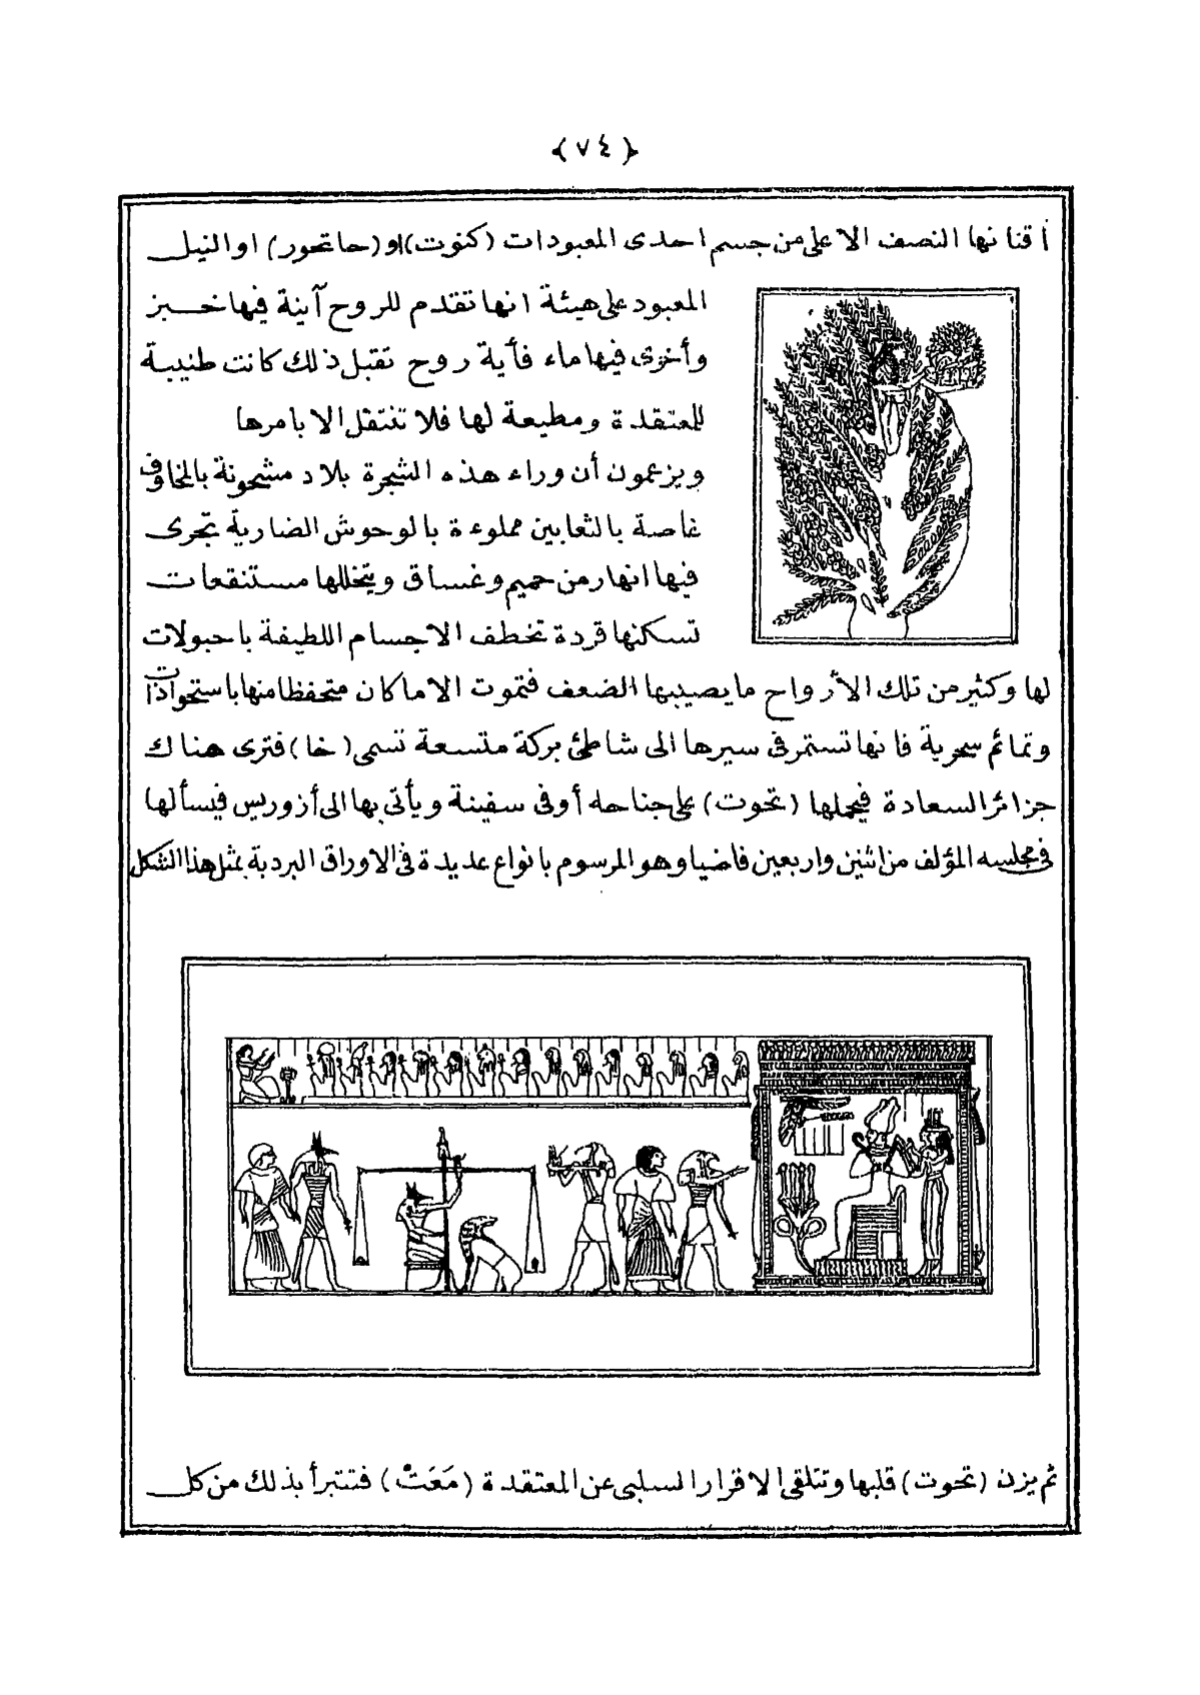 ﴿٧٤﴾
أقنانها النصف الاعلى من جسم احدى المعبودات (كنوت) او (حاتحور) او النيل
المعبود على هيئة انها تقدم للروح آنية فيها خبز
وأخرى فيها ماء فأية روح تقبل ذلك كانت طنيبة
للمعتقدة ومطيعة لها فلا تنتقل الا بامرها
ويزعمون أن وراء هذه الشجرة بلاد مشحونة بالمخاوف
غاصة بالثعابين مملوءة بالوحوش الضارية تجرى
فيها انهار من حميم وغساق ويتخللها مستنقعات
تسكنها قردة تخطف الاجسام اللطيفة باحبولات
لها وكثير من تلك الأرواح ما يصيبها الضعف فتموت الا ما كان متحفظا منها باستحواذات
وتمائم سحرية فانها تستمر فى سيرها الى شاطئ بركة متسعة تسمى (خا) فترى هناك
جزائر السعادة فيحملها (تحوت) على جناحه أو فى سفينة ويأتى بها الى أزوريس فيسألها
فى مجلسه المؤلف من اثنين واربعين قاضيا وهو المرسوم بانواع عديدة فى الاوراق البردية بمثل هذا الشكل
ثم يزن (تحوت) قلبها وتتلقى الاقرار السلبى عن المعتقدة (مَعَتْ) فتتبرأ بذلك من كل